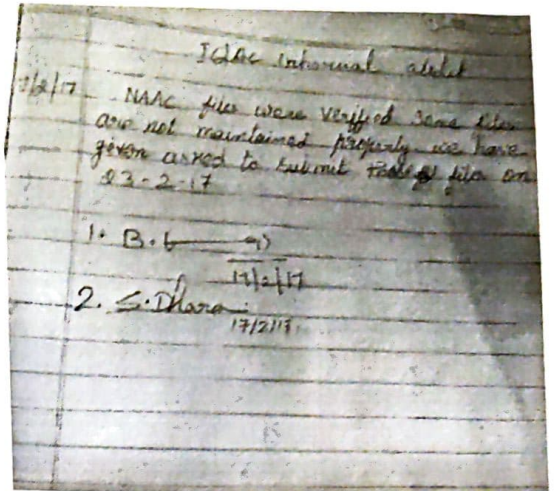 IQAC internal audit
17/2/17 NAAC files were verified some files
are not maintained properly we have
given asked to submit files on
23-2-17
1. B.
17/2/17
2. S. Dhara
17/2/17